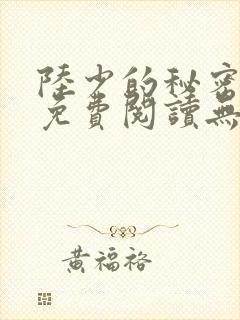 陸少的秘密
免費閱讀無
黃福裕